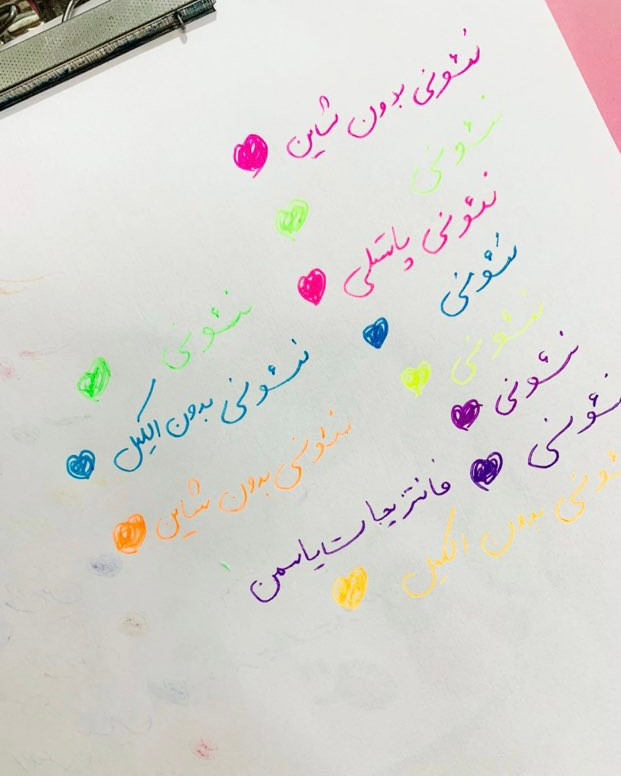 نئونی بدون شاین
نئونی
نئونی پاستلی
نئونی
نئونی
نئونی
نئونی بدون اکلیل
نئونی
نئونی
نئونی بدون شاین
نئونی بدون اکلیل
فانتزیجات یاسمن